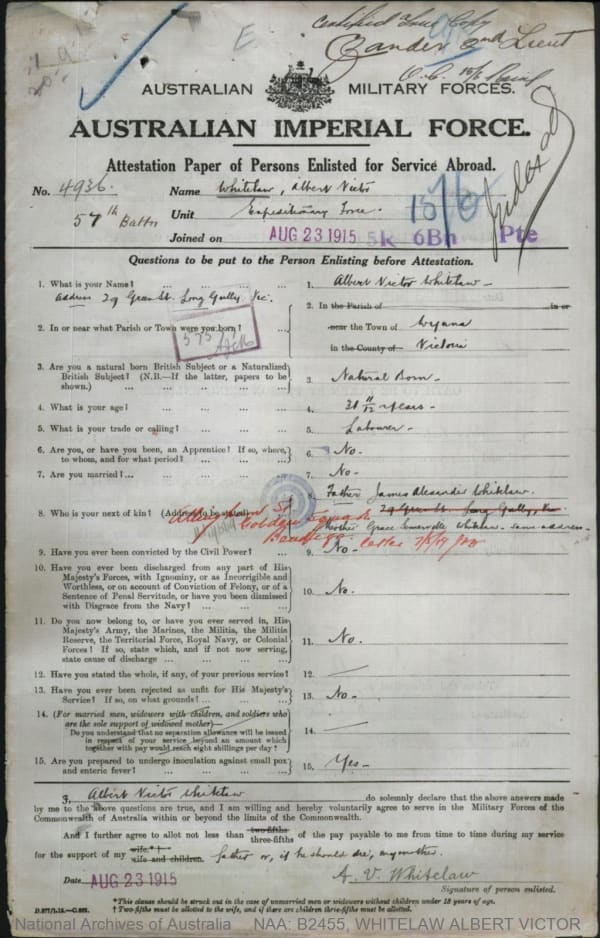 Certified True Copy
2nd Lieut
E
AUSTRALIAN MILITARY FORCES.
AUSTRALIAN IMPERIAL FORCE.
Attestation Paper of Persons Enlisted for Service Abroad.
No. 4936. Name Whitelaw, Albert Victor
57th Battn Unit Expeditionary Force.
Joined on AUG 23 1915 6Bn Pte
Questions to be put to the Person Enlisting before Attestation.
1. What is your Name? ... ... ... ... 1. Albert Victor Whitelaw -
Address 29 Gran St. Long Gully Vic.
2. In or near what Parish or Town were you born? ... 2. In the Parish of in or
near the Town of
in the County of Victoria
575
3. Are you a natural born British Subject or a Naturalized British Subject? (N.B.—If the latter, papers to be shown.) ... ... 3. Natural Born -
4. What is your age? ... ... ... ... 4. 11/12 years -
5. What is your trade or calling? ... ... ... 5. Labourer -
6. Are you, or have you been, an Apprentice? If so, where, to whom, and for what period? ... ... ... 6. No -
7. Are you married? ... ... ... ... 7. No -
8. Who is your next of kin? (Address to be stated) 8. Father James Alexander Whitelaw.
29 Gran St. Long Gully, Vic.
Mother Grace Whitelaw - same address -
St Golden Square
Bendigo.
9. Have you ever been convicted by the Civil Power? ... 9. No -
10. Have you ever been discharged from any part of His Majesty's Forces, with Ignominy, or as Incorrigible and Worthless, or on account of Conviction of Felony, or of a Sentence of Penal Servitude, or have you been dismissed with Disgrace from the Navy? ... ... ... 10. No -
11. Do you now belong to, or have you ever served in, His Majesty's Army, the Marines, the Militia, the Militia Reserve, the Territorial Force, Royal Navy, or Colonial Forces? If so, state which, and if not now serving, state cause of discharge ... ... ... ... 11. No -
12. Have you stated the whole, if any, of your previous service? 12. —
13. Have you ever been rejected as unfit for His Majesty's Service? If so, on what grounds? ... ... ... 13. No -
14. (For married men, widowers with children, and soldiers who are the sole support of widowed mother)—
Do you understand that no separation allowance will be issued in respect of your service beyond an amount which together with pay would reach eight shillings per day? 14. —
15. Are you prepared to undergo inoculation against small pox and enteric fever? ... ... ... ... 15. Yes -
I, Albert Victor Whitelaw do solemnly declare that the above answers made
by me to the above questions are true, and I am willing and hereby voluntarily agree to serve in the Military Forces of the
Commonwealth of Australia within or beyond the limits of the Commonwealth.
And I further agree to allot not less than two-fifths three-fifths of the pay payable to me from time to time during my service
for the support of my wife.*† wife and children. father or, if he should die, my mother.
Date AUG 23 1915 A. V. Whitelaw
Signature of person enlisted.
*This clause should be struck out in the case of unmarried men or widowers without children under 18 years of age.
† Two-fifths must be allotted to the wife, and if there are children three-fifths must be allotted.
National Archives of Australia NAA: B2455, WHITELAW ALBERT VICTOR